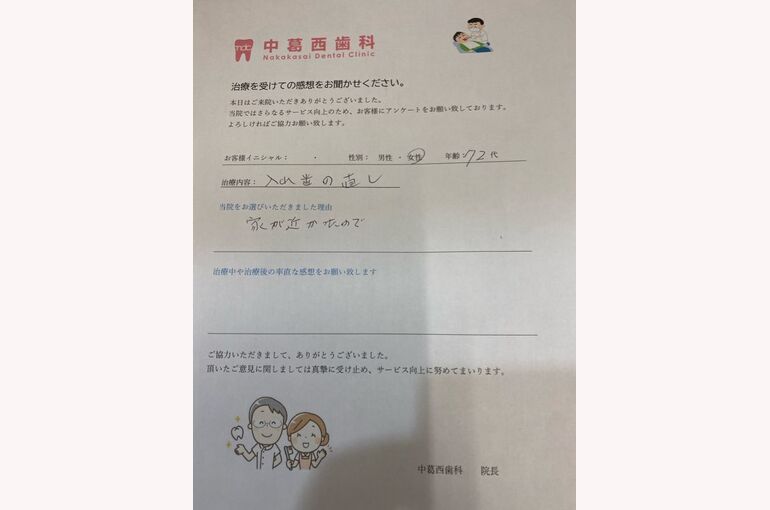 ncc 中葛西歯科
Nakakasai Dental Clinic
治療を受けての感想をお聞かせください。
本日はご来院いただきありがとうございました。
当院ではさらなるサービス向上のため、お客様にアンケートをお願い致しております。
よろしければご協力お願い致します。
お客様イニシャル： ・ 性別： 男性 ・ 女性 年齢：72代
治療内容： 入れ歯の直し
当院をお選びいただきました理由
家が近かたので
治療中や治療後の率直な感想をお願い致します
ご協力いただきまして、ありがとうございました。
頂いたご意見に関しましては真摯に受け止め、サービス向上に努めてまいります。
中葛西歯科 院長